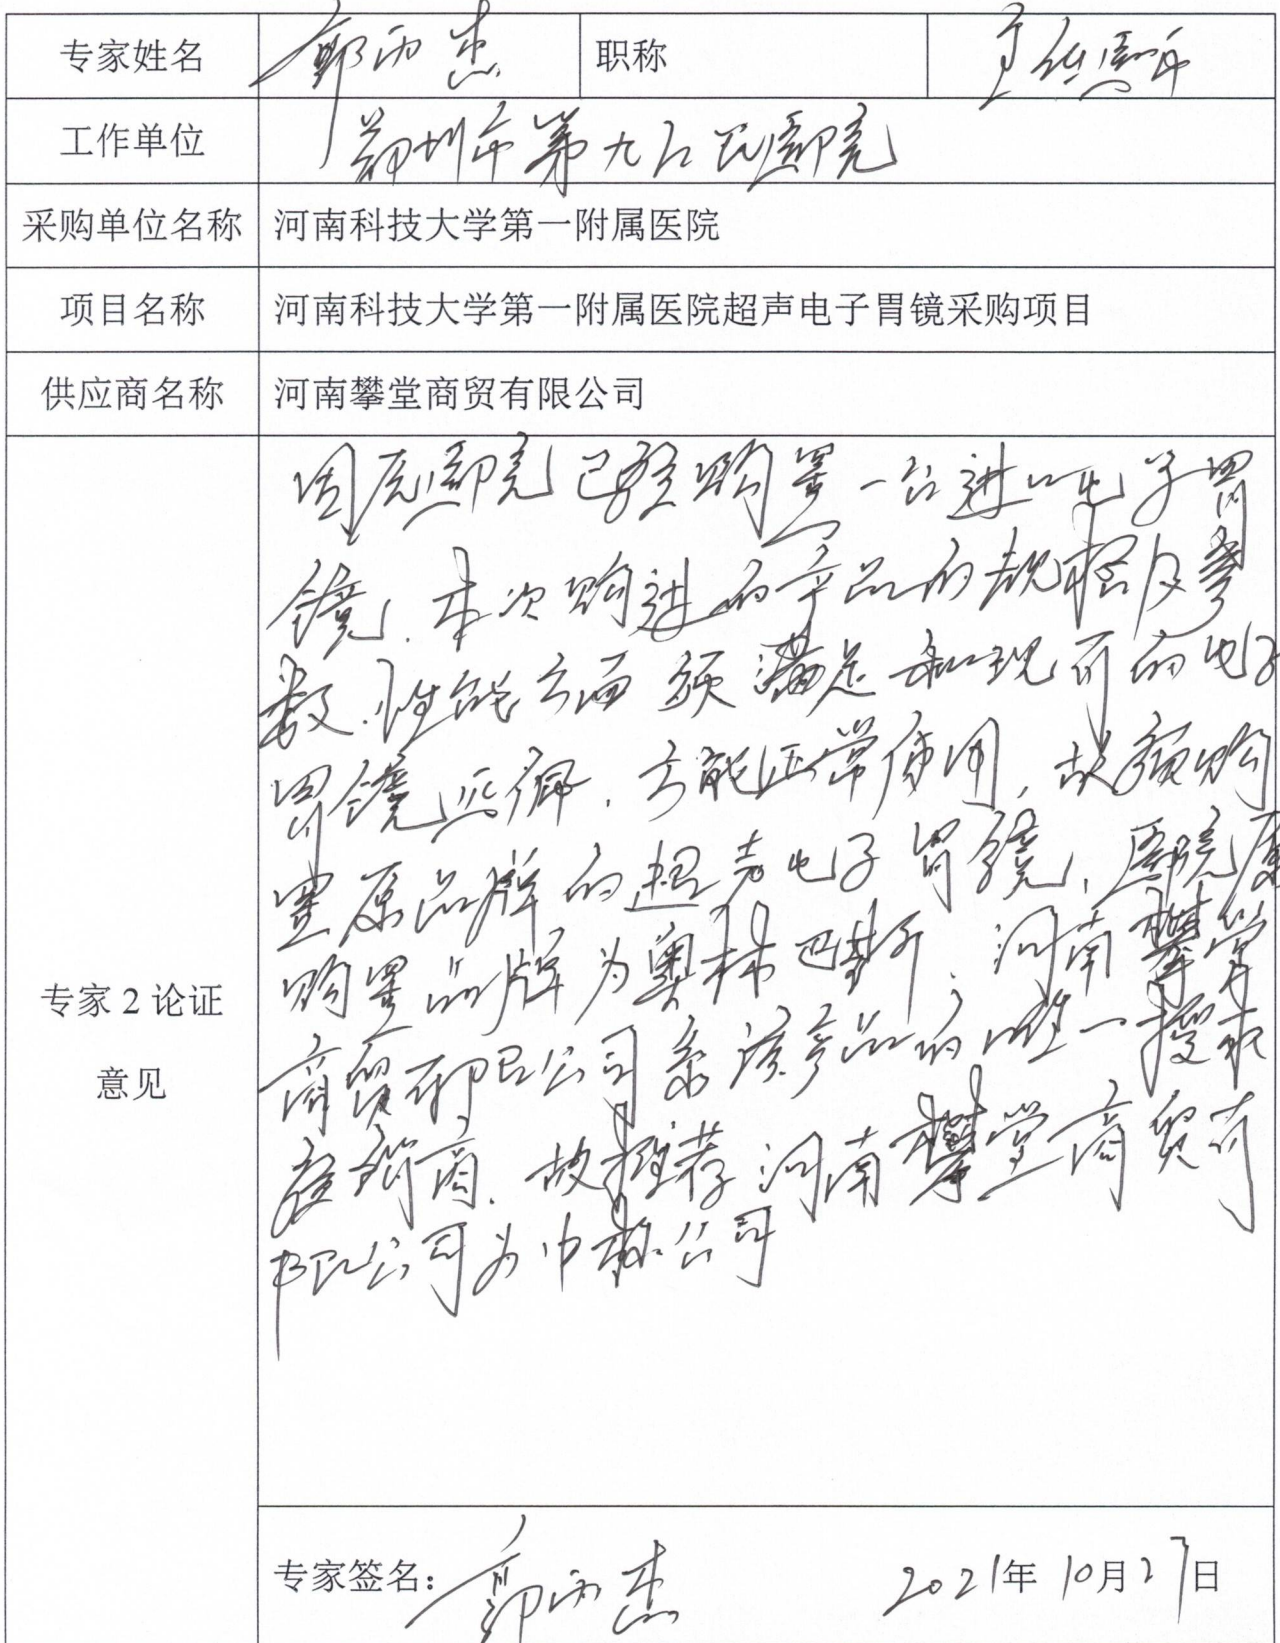 专家姓名 郭雨杰 职称 主任医师
工作单位 郑州市第九人民医院
采购单位名称 河南科技大学第一附属医院
项目名称 河南科技大学第一附属医院超声电子胃镜采购项目
供应商名称 河南攀堂商贸有限公司
专家2论证
意见
因医院已经购置一台进口电子胃
镜,本次购进的产品的规格及参
数、性能方面须满足和现有的电子
胃镜匹配,方能正常使用,故须购
置原品牌的超声电子胃镜,医院原
购置品牌为奥林巴斯,河南攀堂
商贸有限公司系该产品的唯一授权
经销商,故推荐河南攀堂商贸有
限公司为中标公司
专家签名: 郭雨杰 2021年10月27日